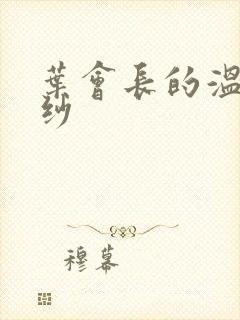 葉會長的溫
紗
穆幕